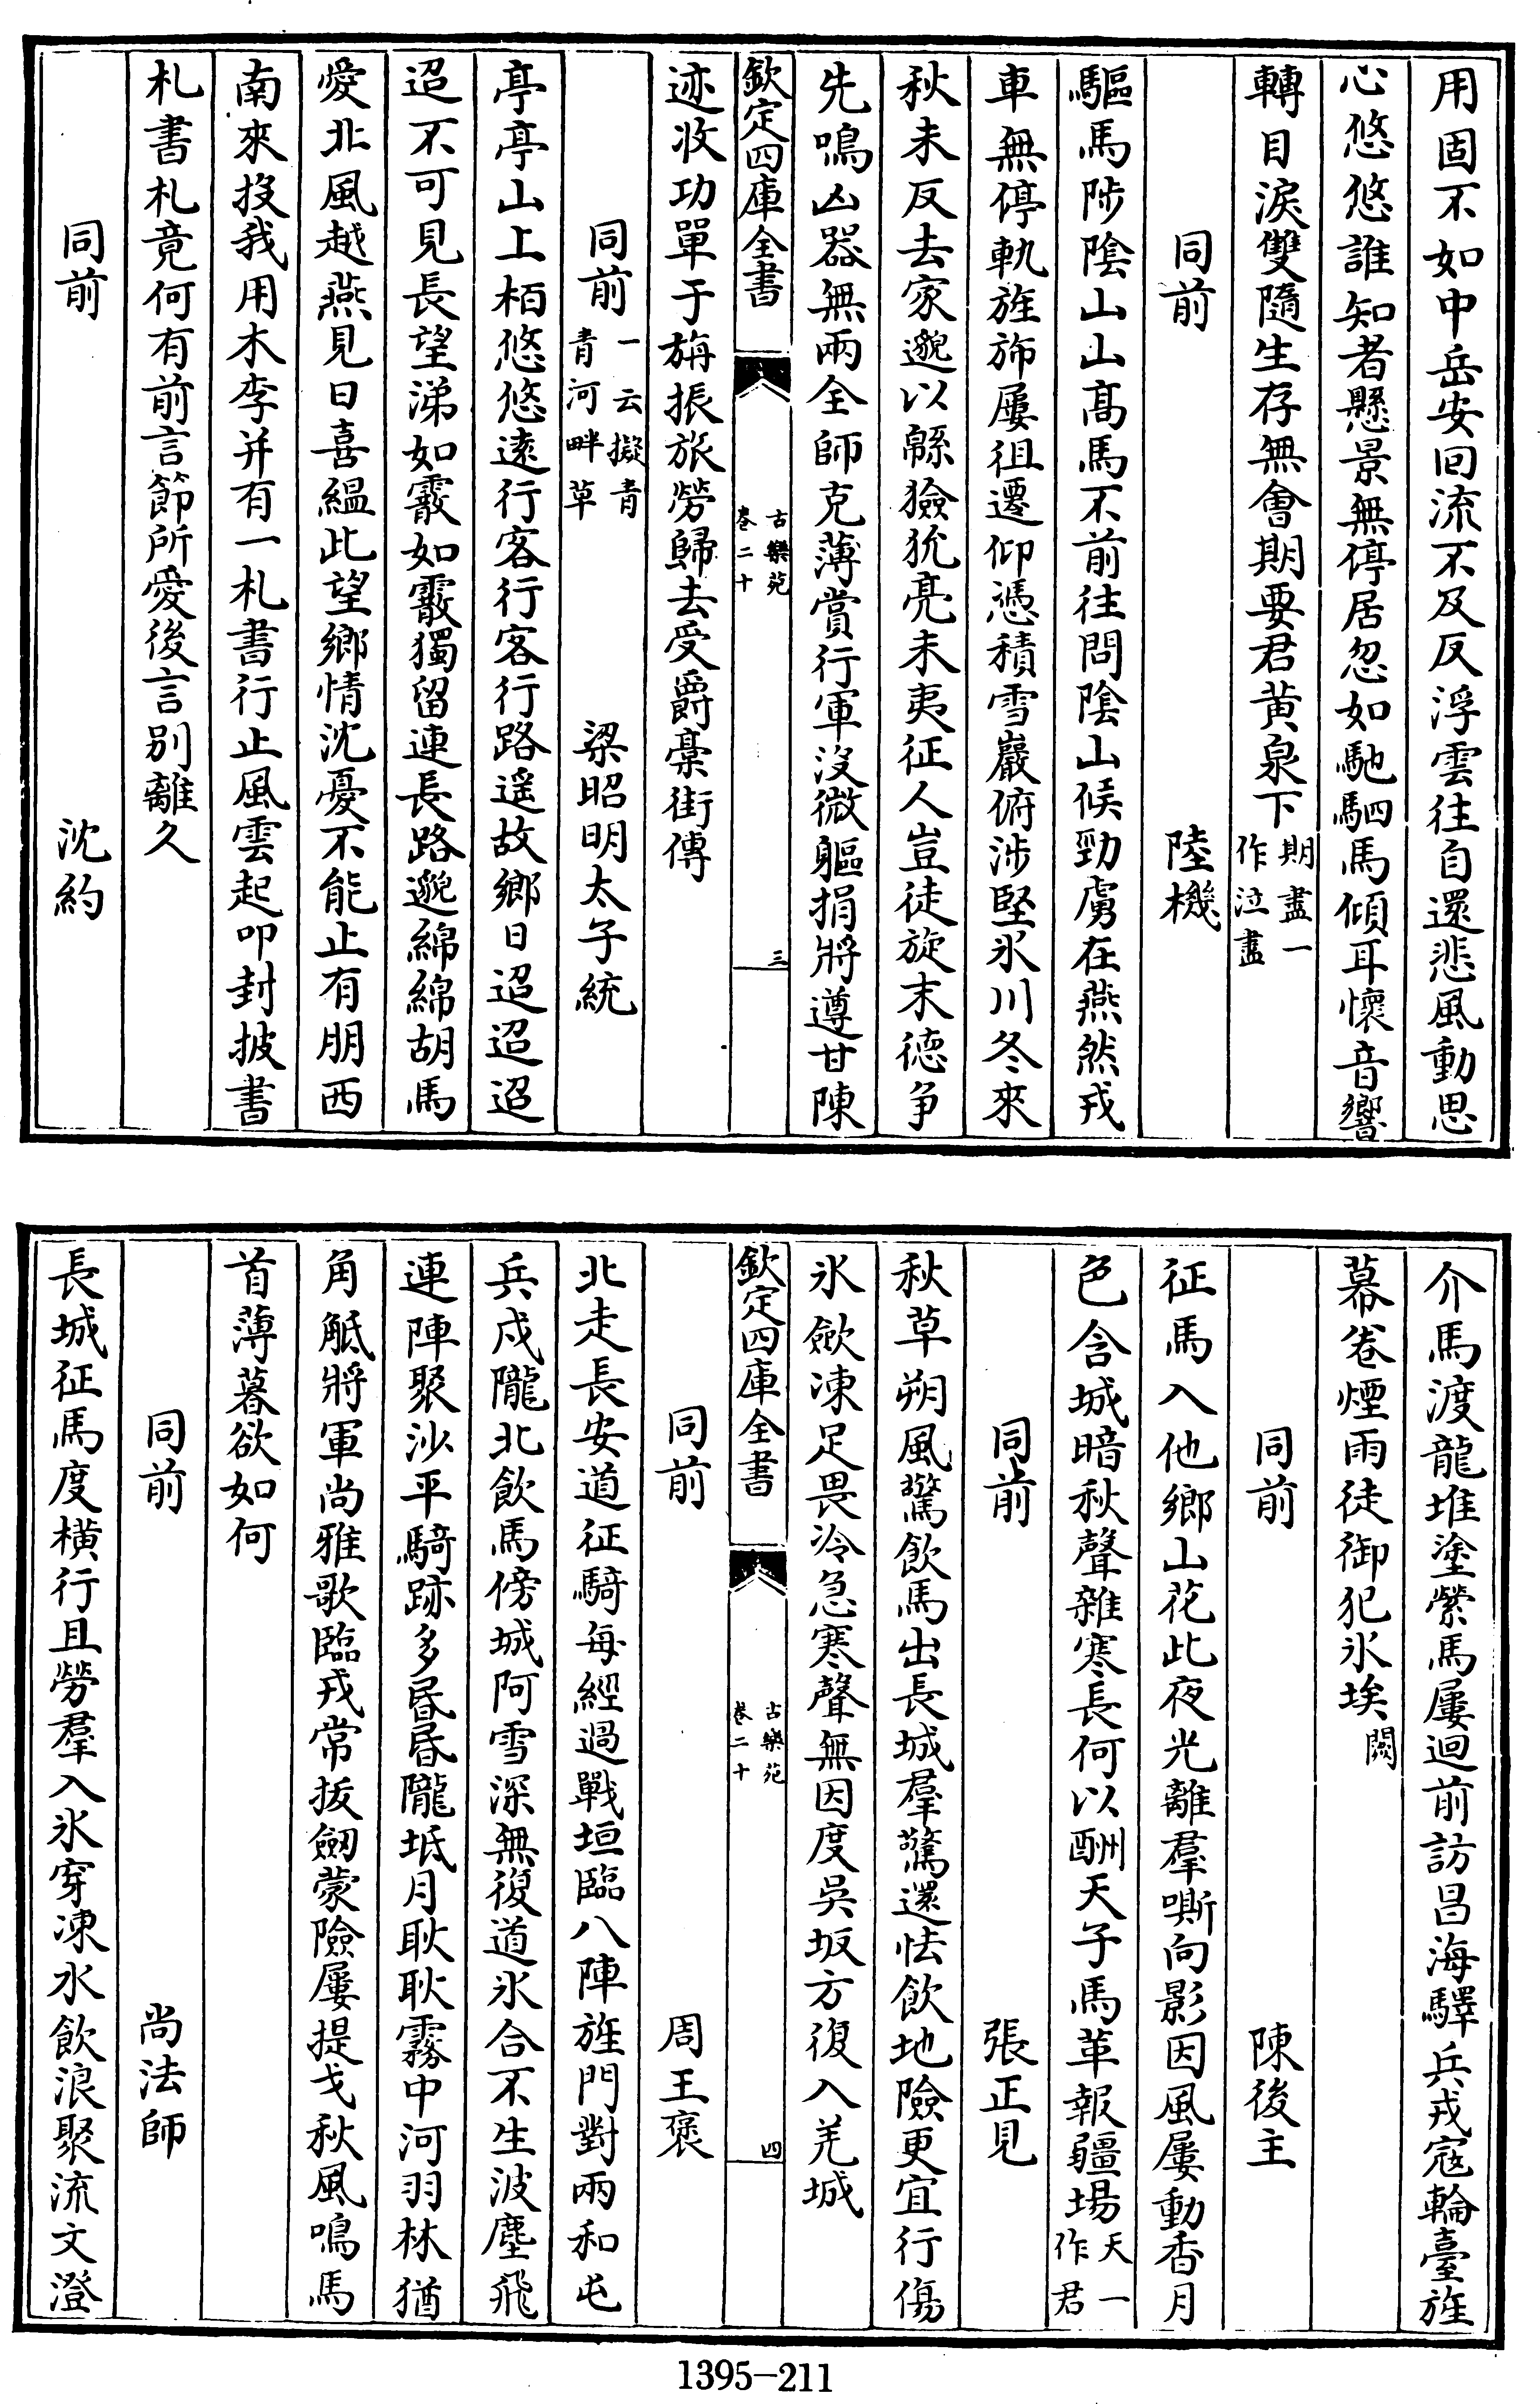 用固不如中岳安回流不及反浮雲往自還悲風動思
心悠悠誰知者懸景無停居忽如馳駟馬傾耳懷音響
轉目淚雙隨生存無會期要君黃泉下期盡一作泣盡
同前 陸機
驅馬陟陰山山高馬不前往問陰山候勁虜在燕然戎
車無停軌旌斾屢徂遷仰憑積雪巖俯涉堅氷川冬來
秋未反去家邈以緜獫狁亮未夷征人豈徒旋末德争
先鳴凶器無兩全師克薄賞行軍沒微軀捐將遵甘陳
欽定四庫全書 古樂苑卷二十 三
迹收功單于旃振旅勞歸去受爵稾街傳
同前一云擬青青河畔草 梁昭明太子統
亭亭山上栢悠悠逺行客行客行路遥故鄉日迢迢迢
迢不可見長望涕如霰如霰獨留連長路邈綿綿胡馬
愛北風越燕見日喜緼此望鄉情沈憂不能止有朋西
南來投我用木李并有一札書行止風雲起叩封披書
札書札竟何有前言節所愛後言别離久
同前 沈約
介馬渡龍堆塗縈馬屢迴前訪昌海驛兵戎寇輪臺旌
幕卷煙雨徒御犯氷埃闕
同前 陳後主
征馬入他鄉山花此夜光離羣嘶向影因風屢動香月
色含城暗秋聲雜寒長何以酬天子馬革報疆場天一作君
同前 張正見
秋草朔風驚飲馬出長城羣驚還怯飲地險更宜行傷
氷歛凍足畏冷急寒聲無因度吳坂方復入羌城
欽定四庫全書 古樂苑卷二十 四
同前 周王襃
北走長安道征騎每經過戰垣臨八陣旌門對兩和屯
兵戍隴北飲馬傍城阿雪深無復道氷合不生波塵飛
連陣聚沙平騎跡多昏昏隴坻月耿耿霧中河羽林猶
角觝將軍尚雅歌臨戎常拔劒蒙險屢提戈秋風鳴馬
首薄暮欲如何
同前 尚法師
長城征馬度横行且勞羣入氷穿凍水飲浪聚流文澄
1395-211